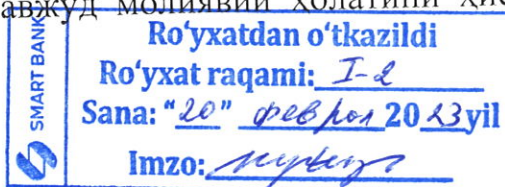 авжуд молиявий ҳолатини ҳис
SMART BANK
Ro'yxatdan o'tkazildi
Ro'yxat raqami: I-2
Sana: "20" феврал 2023 yil
Imzo: